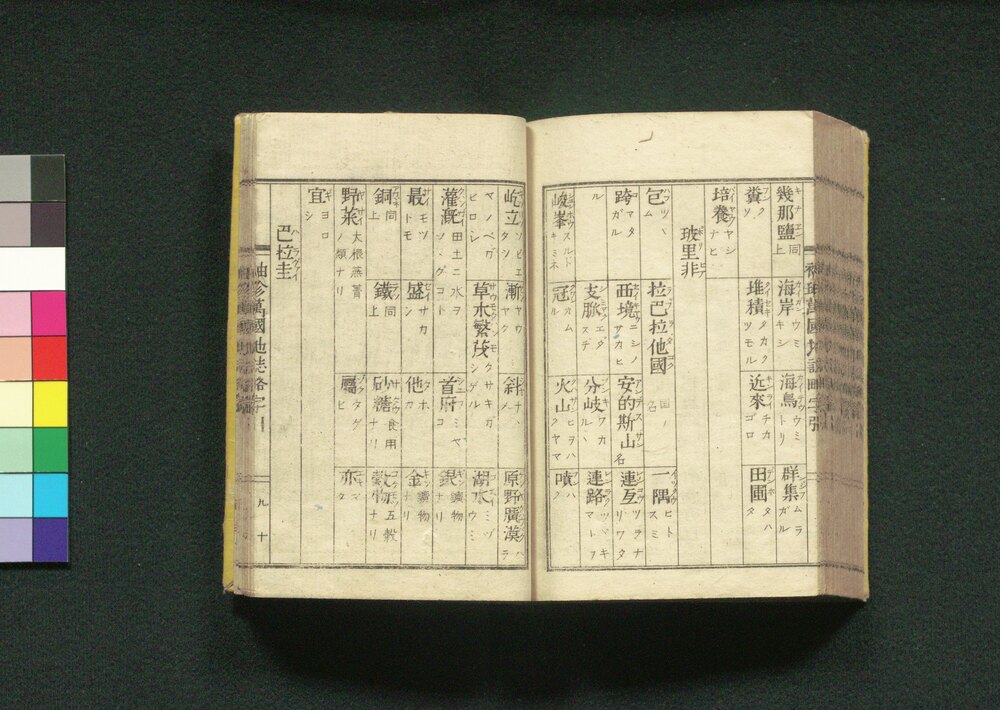 幾那鹽 キナエン 同上 海岸 カイガン ウミキシ 海鳥 カイテウ ウミトリ 群集 グンシフ ムラガル
糞 フン クソ 堆積 タイセキ タカクツモル 近來 キンライ チカゴロ 田圃 デンホ タハタ
培養 バイヤウ ヤシナヒ
玻里非 ボリビア
包 ハウ ツヽム 拉巴拉他國 ラプラタコク 国ノ名 一隅 イチグウ ヒトスミ
跨 コ マタガル 西境 セイキヤウ ニシノサカヒ 安的斯山 アンデスサン 山名 連互 レンゴ ツラナリワタ
ル 支脈 シミヤク エダスヂ 分岐 ブンキ ワカルヽ 連路 レンラク ツヾキマトフ
峻峯 シユンホウ スルドキミネ 冠 クワン カムル 火山 クワザン ヒヲハクヤマ 噴 フン ハク
屹立 キツリツ ソビエタツ 漸 ゼン ヤウヤク 斜 シヤ ナヽメ 原野廣漠 ゲンヤクワウバク ハラ
ヤノベヴヒロシ 草木繁茂 サウモクハンモ クサキシゲル 湖水 コスイ ミヅウミ
灌漑 クワンガイ 田土ニ水ヲソヽグコト 首府 シユフ ミヤコ 銀 ギン 鑛物ナリ
最 サイ モツトモ 盛 セイ サカン 他 タ ホカ 金 キン 鑛物ナリ
銅 アカヾネ 同上 鐵 テツ 同上 砂糖 サタウ 食用ナリ 穀物 コクモツ 五穀ナリ
野菜 ヤサイ 大根蕪菁ノ類ナリ 屬 ゾク タグヒ 亦 エキ マタ
宜 ギ ヨロシ
巴拉圭 パラグアイ
袖珍萬國地誌略字引
九 十